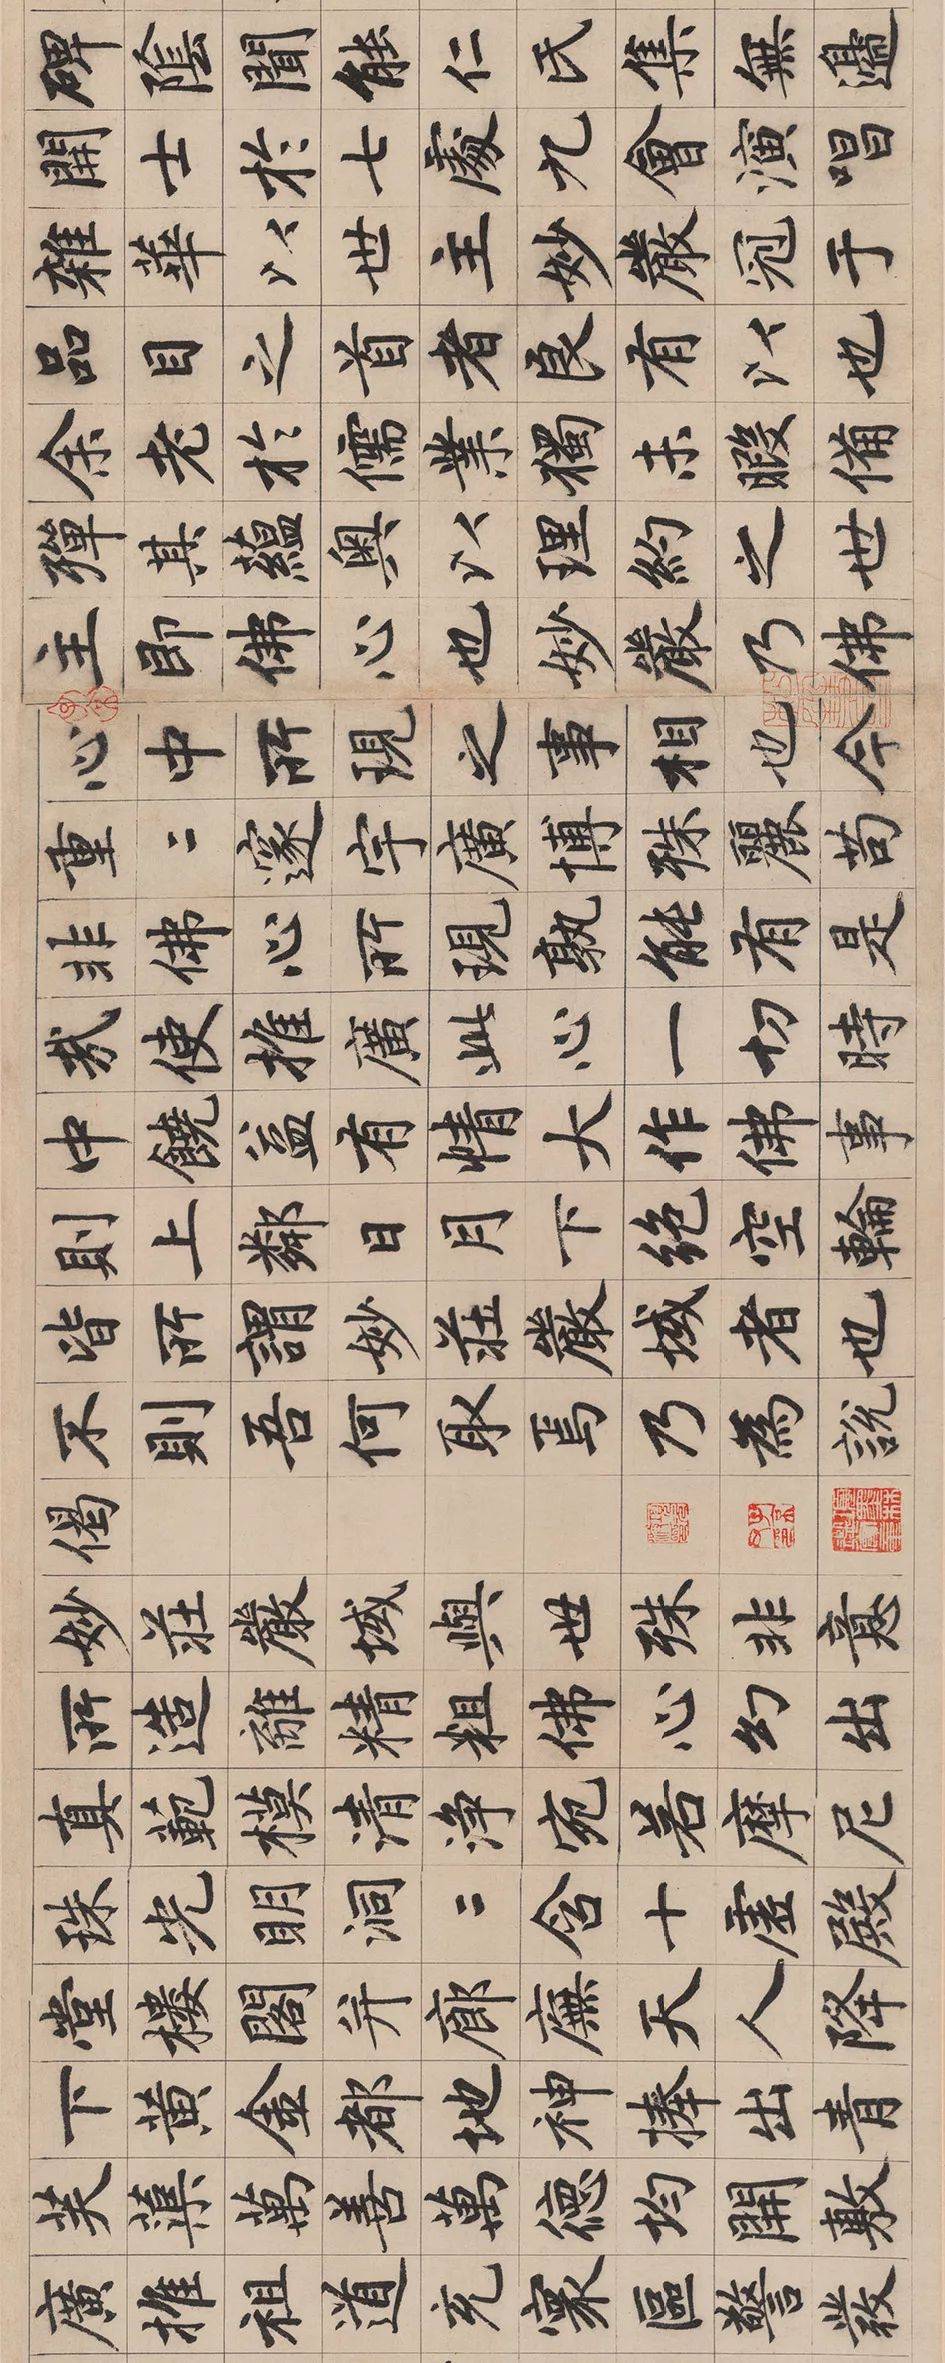 碑陰聞能仁氏集無邊
開士於七處九會演唱
雜華以世主妙嚴冠于
品目之首者良有以也
余老於儒業獨未暇備
殫其蘊奧以理約之世
主即佛心也妙嚴乃佛
心中所現之事相也今
重二邃宇廣博殊麗苟
非佛心所現孰能有是
哉使推廣此心一切時
中饒益有情大作佛事
則上鄰日月下絕空輪
皆所謂妙莊嚴域者也
不則吾何取焉乃為說
偈
妙莊嚴域與世殊非意
所造離精粗佛心幻出
真範模清淨宛若摩尼
珠光明洞二含十虛殿
堂樓閣并廊廡天人降
下黃金都地神捧出青
芙蕖萬善萬德均開敷
廣推祖道充寰區警